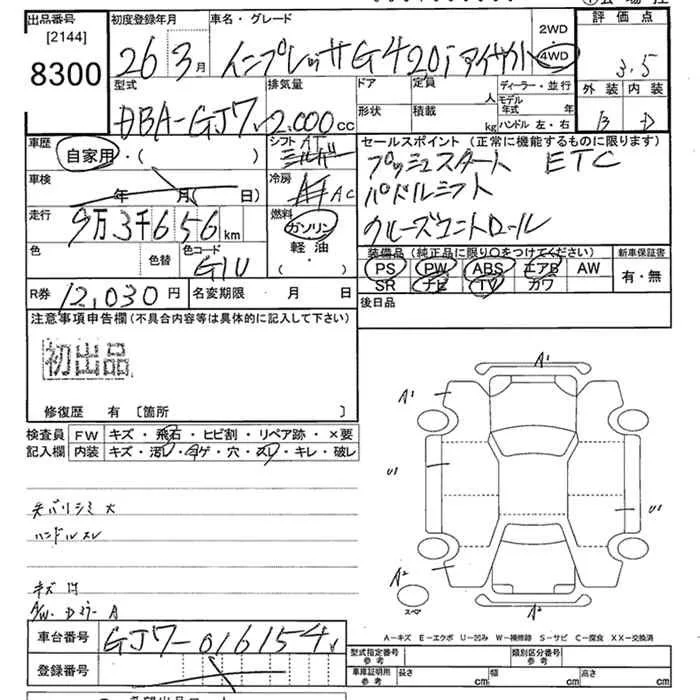 出品番号 初度登録年月 車名・グレード 2WD 評価点
[2144] 26 3月 インプレッサ G4 20i アイサイト 4WD 3.5
8300 型式 排気量 ドア 定員 人 ディーラー・並行 外装 内装
DBA-GJ7 2,000cc 形状 積載 kg モデル年式 年 ハンドル 左・右 B D
車歴 自家用・( ) シフト AT セールスポイント(正常に機能するものに限ります)
プッシュスタート ETC
車検 年 月( 日) 冷房 AC パドルシフト
走行 9万3千656km 燃料 ガソリン クルーズコントロール
色 色替 色コード G1U 軽油 (・) 装備品(純正品に限り○をつけてください) 新車保証書
PS PW ABS エアB AW 有・無
SR ナビ TV カワ
R券 12,030円 名変期限 月 日 後日品
注意事項申告欄(不具合内容等は具体的に記入して下さい)
初出品
修復歴 有 〔箇所 〕
検査員 FW キズ・飛石・ヒビ割・リペア跡・×要
記入欄 内装 キズ・汚レ・コゲ・穴・スレ・キレ・破レ
天バリシミ大
ハンドルスレ
キズ
A¹ A¹
U¹ U¹
A² スペア A²
A-キズ E-エクボ U-凹み W-補修跡 S-サビ C-腐食 XX-交換済
車台番号 GJ7-016154
登録番号
型式指定番号 参考 類別区分番号 参考
車庫証明用 参考 長さ cm 幅 cm 高さ cm